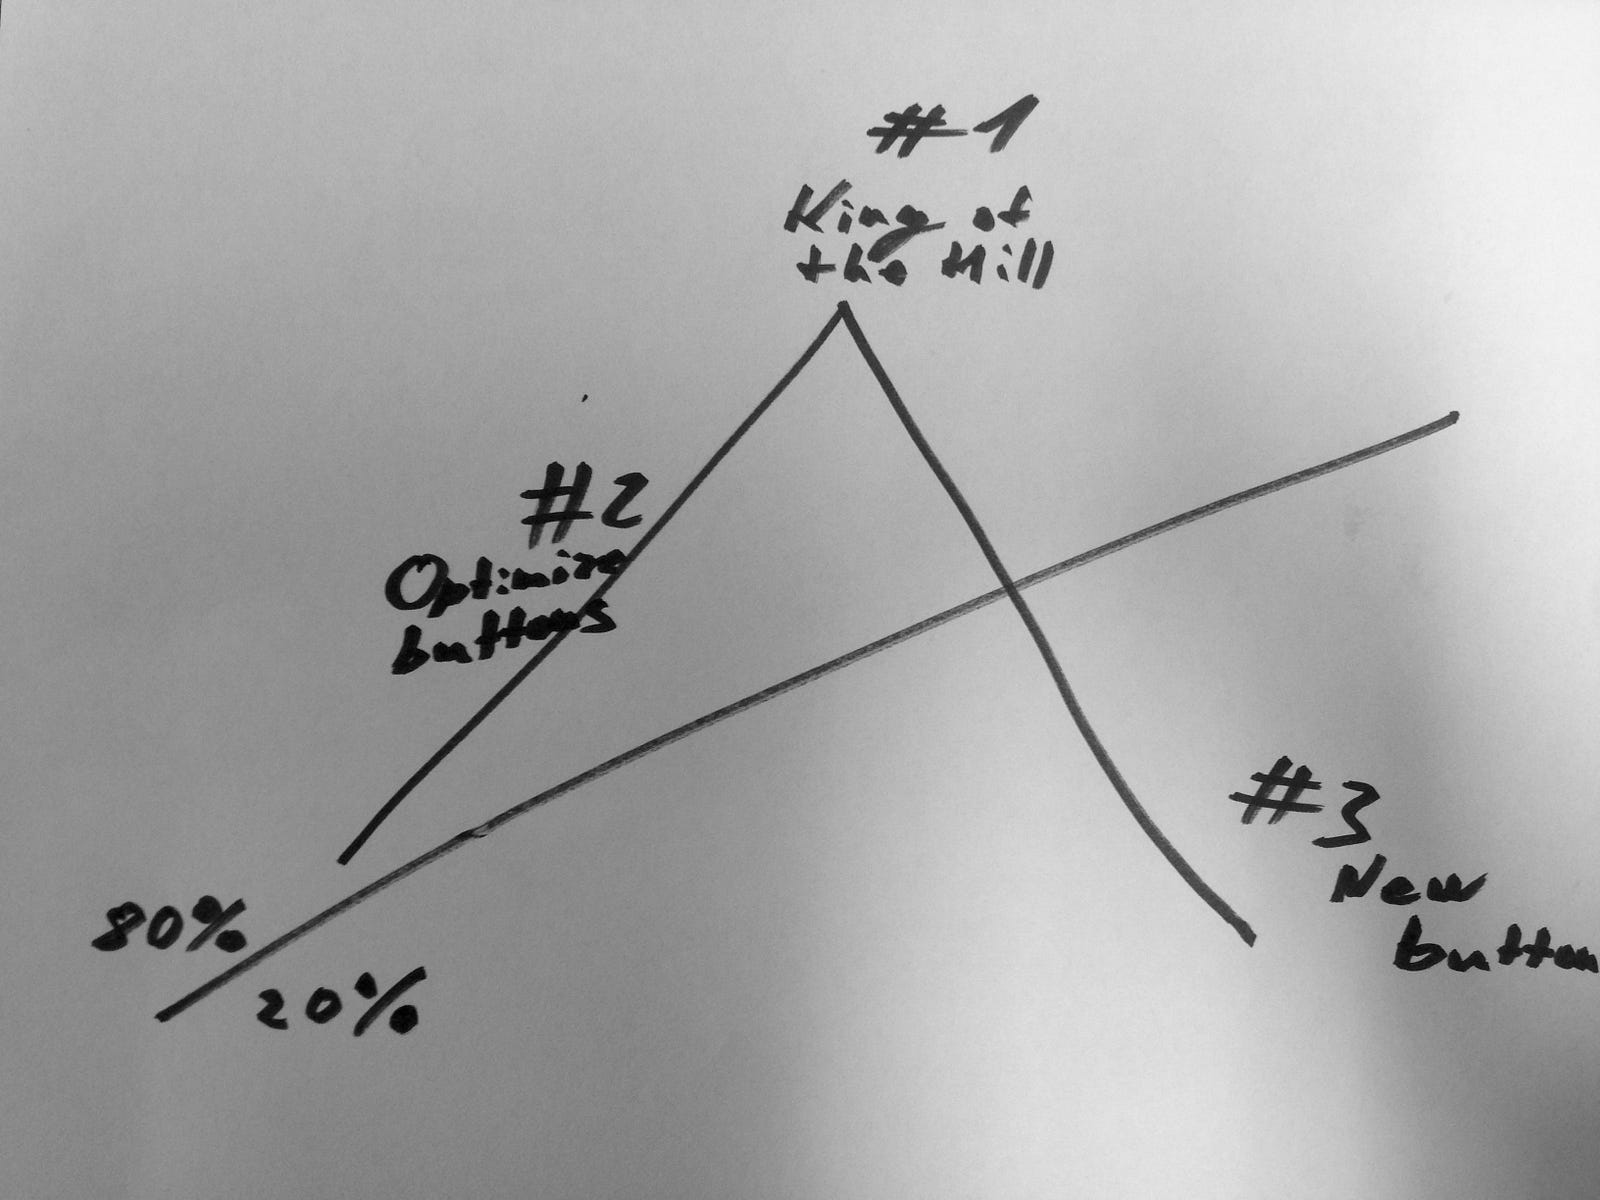 #1
King of
the Hill
#2
Optimize
buttons
80%
20%
#3
New
button